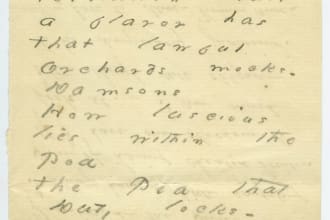 a flavor has
that lawful
Orchards mocks -
Damsons
How luscious
lies within the
Pod
the Pea that
Duty locks -